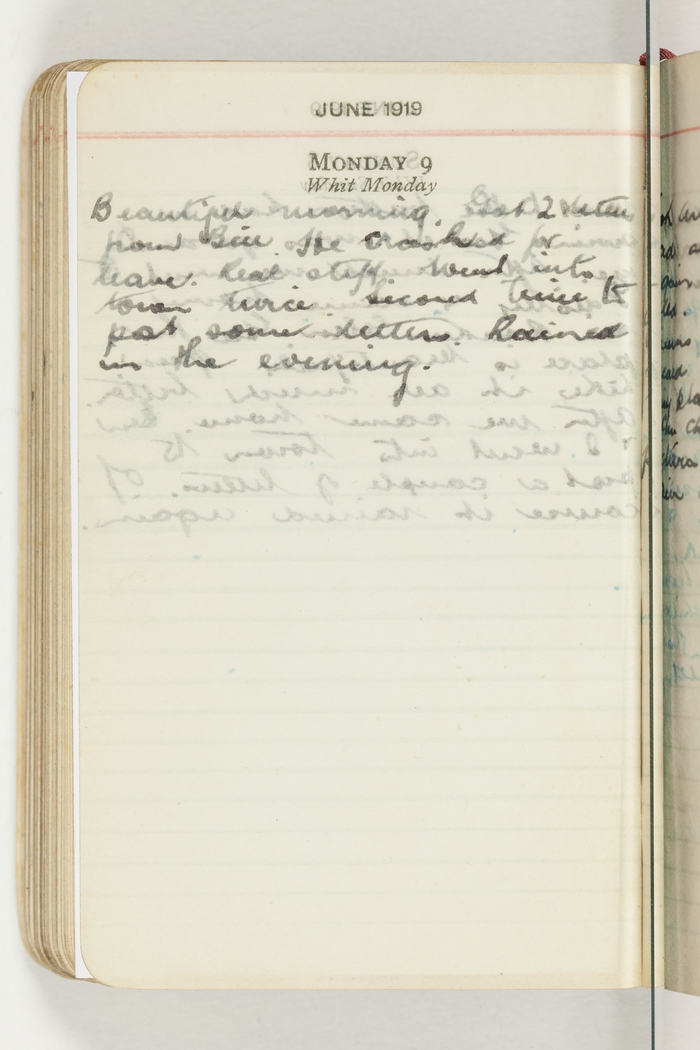 JUNE 1919
MONDAY 9
Whit Monday
Beautiful morning. Got 2 letters
from Bill. He crashed for
leave. Real stiff. Went into
town twice. second time to
post some letters. Rained
in the evening.